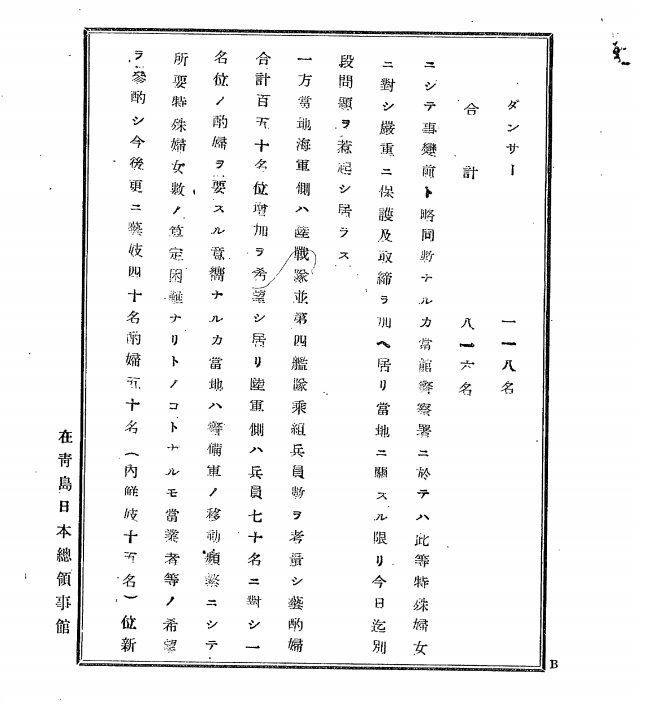 ダンサー 一一八名
合計 八一六名
ニシテ事變前ト略同數ナルカ當館警察署ニ於テハ此等特殊婦女
ニ對シ嚴重ニ保護及取締ヲ加ヘ居リ當地ニ關スル限リ今日迄別
段問題ヲ惹起シ居ラス
一方當地海軍側ハ陸戰隊並第四艦隊乘組兵員數ヲ考量シ藝酌婦
合計百五十名位增加ヲ希望シ居リ陸軍側ハ兵員七十名ニ對シ一
名位ノ酌婦ヲ要スル意嚮ナルカ當地ハ警備軍ノ移動頻繁ニシテ
所要特殊婦女數ノ算定困難ナリトノコトナルモ當業者等ノ希望
ヲ參酌シ今後更ニ藝妓四十名酌婦五十名(內鮮妓十五名)位新
在青島日本總領事館
B